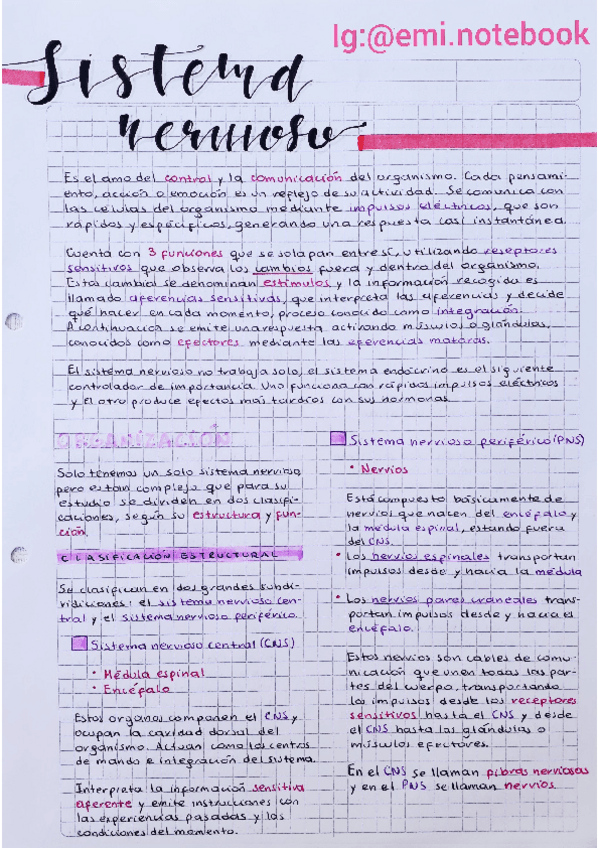 Ig:@emi.notebook
Sistema
nervioso
Es el amo del control y la comunicación del organismo. Cada pensami-
ento, acción o emoción es un reflejo de su actividad. Se comunica con
las células del organismo mediante impulsos eléctricos, que son
rápidos y específicos, generando una respuesta casi instantánea.
Cuenta con 3 funciones que se solapan entre sí, utilizando reseptores
sensitivos que observa los cambios fuera y dentro del organismo.
Esta cambial se denominan estímulos y la información recogida es
llamado aferencias sensitivas, que interpreta las aferencias y decide
qué hacer en cada momento, proceso conocido como integración.
A continuación se emite una respuesta activando músculos o glándulas,
conocidos como efectores mediante las eferencias motoras.
El sistema nervioso no trabaja solo, el sistema endocrino es el siguiente
controlador de importancia. Uno funciona con rápidos impulsos eléctricos
y el otro produce efectos más tardíos con sus hormonas.
ORGANIZACIÓN
Solo tenemos un solo sistema nervioso,
pero es tan complejo que para su
estudio se dividen en dos clasifi-
caciones, según su estructura y fun-
ción.
CLASIFICACIÓN ESTRUCTURAL
Se clasifican en dos grandes subdi-
vidiciones: el sistema nervioso cen-
tral y el sistema nervioso periférico.
Sistema nervioso central (CNS)
• Médula espinal
• Encéfalo
Estos organos componen el CNS y
ocupan la cavidad dorsal del
organismo. Actúan como los centros
de mando e integración del sistema.
Interpreta la información sensitiva
aferente y emite instrucciones con
las experiencias pasadas y las
condiciones del momento.
Sistema nervioso periférico (PNS)
• Nervios
Está compuesto básicamente de
nervios que nacen del encéfalo y
la médula espinal, estando fuera
del CNS.
• Los nervios espinales transportan
impulsos desde y hacia la médula
• Los nervios pares craneales trans-
portan impulsos desde y hacia el
encéfalo.
Estos nervios son cables de comu-
nicación que unen todas las par-
tes del cuerpo, transportando
los impulsos desde los receptores
sensitivos hasta el CNS y desde
el CNS hasta las glándulas o
músculos efectores.
En el CNS se llaman fibras nerviosas
y en el PNS se llaman nervios.